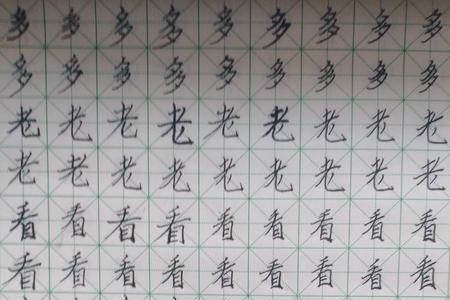 多多多多多多多多多
多多多多多多多多多
老老老老老老老老老
老老老老老老老老老
看看看看看看看看看
看看看看看看看看看